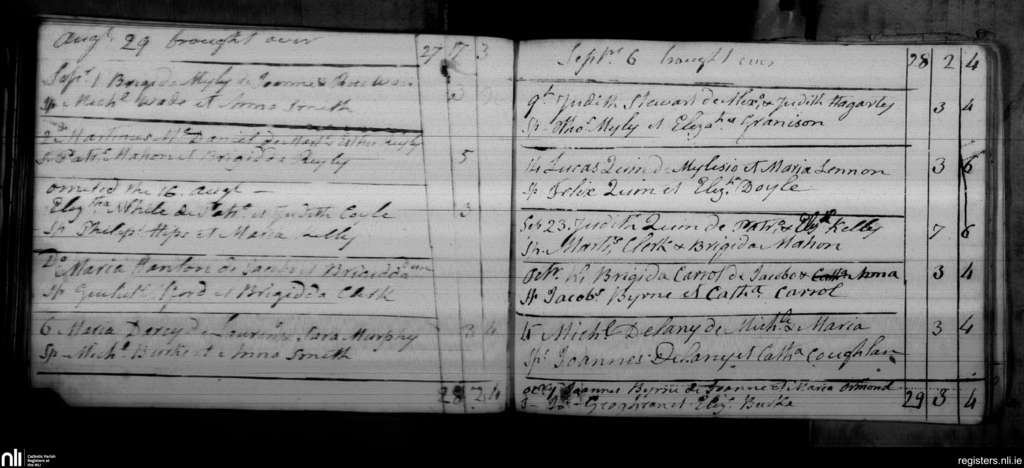 Augt 29 brought over 27 17 3
Septr 1 Brigida Myly de Joanne &
Sp Michl Wade et Anna Smith
2d Martinus Mc Daniel de
Sp Patr. Mahon et Brigidda Reyly 5
omitted the 16 Augt —
Elizth a White de Patr. et Judith Coyle 3
Sp Philip Hyps et Maria Kelly
Do Maria Hanlon de Jacobo et Brigidda
Sp Ford et Brigidda Clark
6 Maria Darcy de Laurence & Sara Murphy 3 4
Sp Michl Burke et Anna Smith
28 2 4
Septr 6 brought over 28 2 4
9th Judith Stewart de Alexr & Judith Hagarty 3 4
Sp Thos Myly et Elizath a Granison
14 Lucas Quin de Mylesio et Maria Lennon 3 6
Sp Felix Quin et Elizh Doyle
Sep 23 Judith Quin de Patr. & Elizth Kelly 7 6
Sp Martn Clerk & Brigida Mahon
Octr Brigida Carrol de Jacobo & Anna 3 4
Sp Jacobs Byrne et Catha Carrol
15 Michl Delany de Michl & Maria 3 4
Sps Joannes Delany et Catha Coughlan
Joannes Byrne de Joanne et Maria Ormond
Geoghran et Elizh Burke 29 3 4
nli
Catholic Parish
Registers at
the NLI
registers.nli.ie